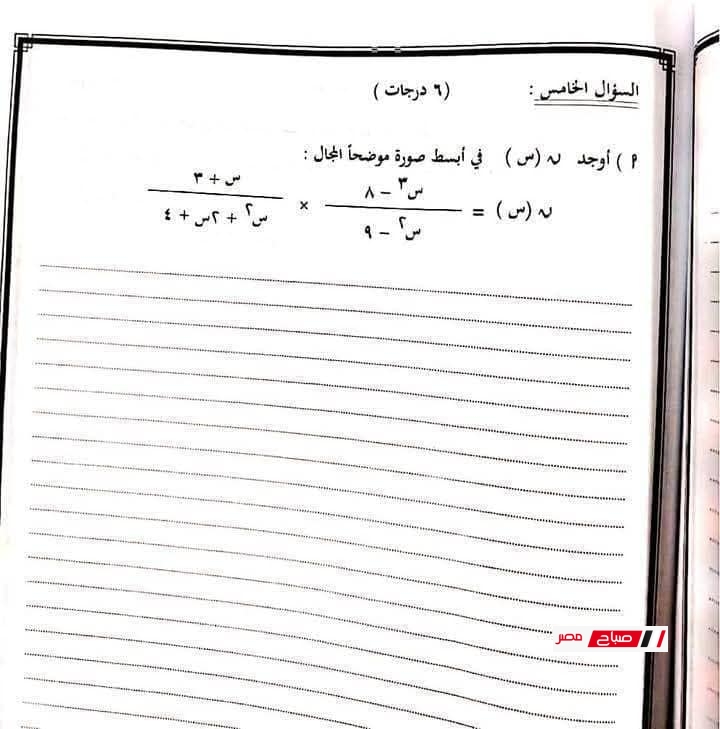 السؤال الخامس : (٦ درجات )
أ ) أوجد ن (س) في أبسط صورة موضحاً المجال :
ن (س) = (س٣ – ٨) / (س٢ – ٩) × (س + ٣) / (س٢ + ٢س + ٤)
صباح مصر